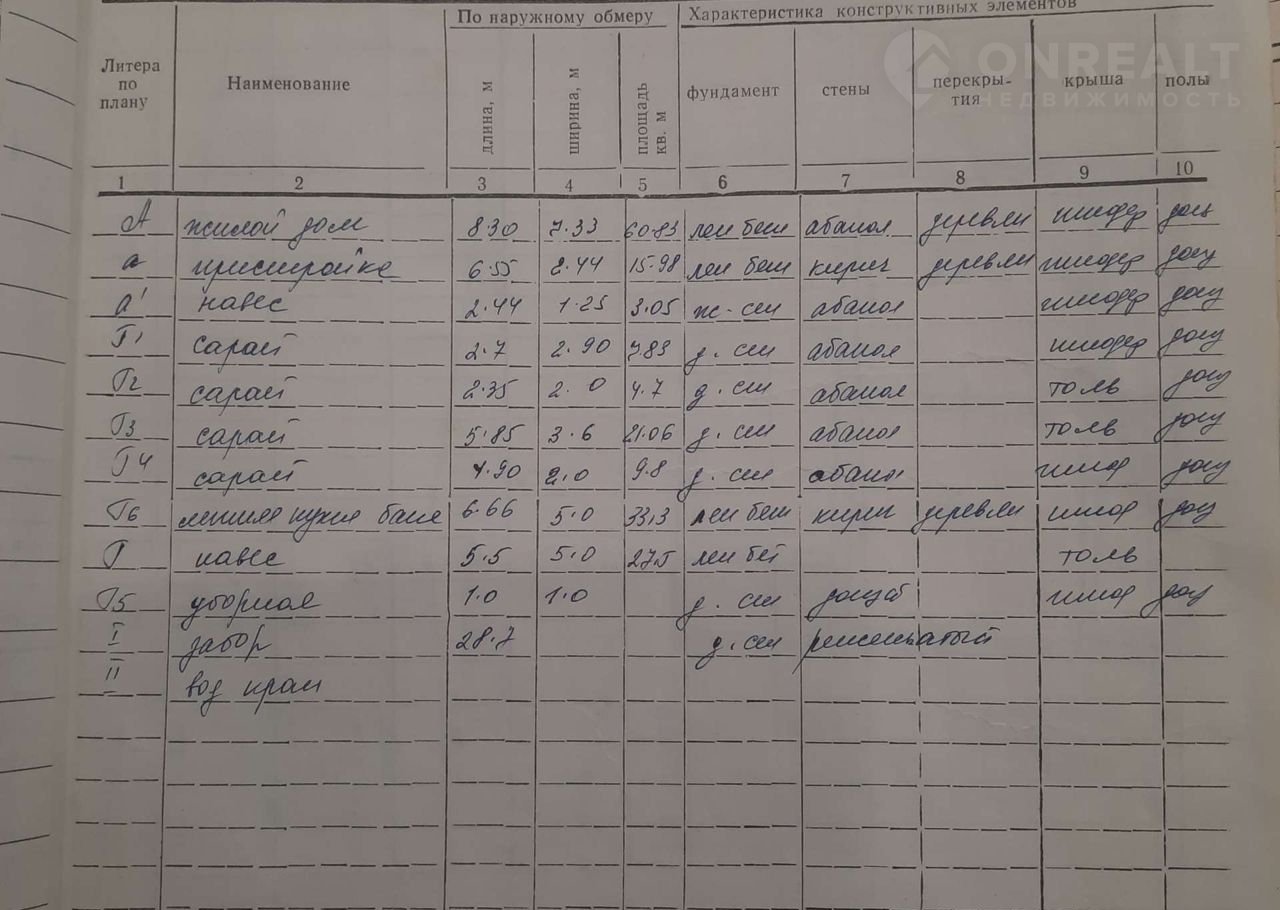 По наружному обмеру Характеристика конструктивных элементов
ONREALT
НЕДВИЖИМОСТЬ
Литера по плану Наименование длина, м ширина, м площадь кв. м фундамент стены перекры-тия крыша полы
1 2 3 4 5 6 7 8 9 10
А жилой дом 8.30 7.33 60.83 лен бет деревян шифер дощ
а пристройка 6.55 2.44 15.98 лен бет кирпич деревян шифер дощ
а' навес 2.44 1.25 3.05 ж-ст шифер дощ
Г1 сарай 2.7 2.90 7.83 д. ст шифер дощ
Г2 сарай 2.35 2.0 4.7 д. ст толь дощ
Г3 сарай 5.85 3.6 21.06 д. ст толь дощ
Г4 сарай 4.90 2.0 9.8 д. ст шиф дощ
Г6 летняя кухня баня 6.66 5.0 33,3 лен бет кирп деревян шиф дощ
Г навес 5.5 5.0 27.5 лен бет толь
Г5 уборная 1.0 1.0 д. ст дощат шиф дощ
I забор 28.7 д. ст решетчатый
II вод кран